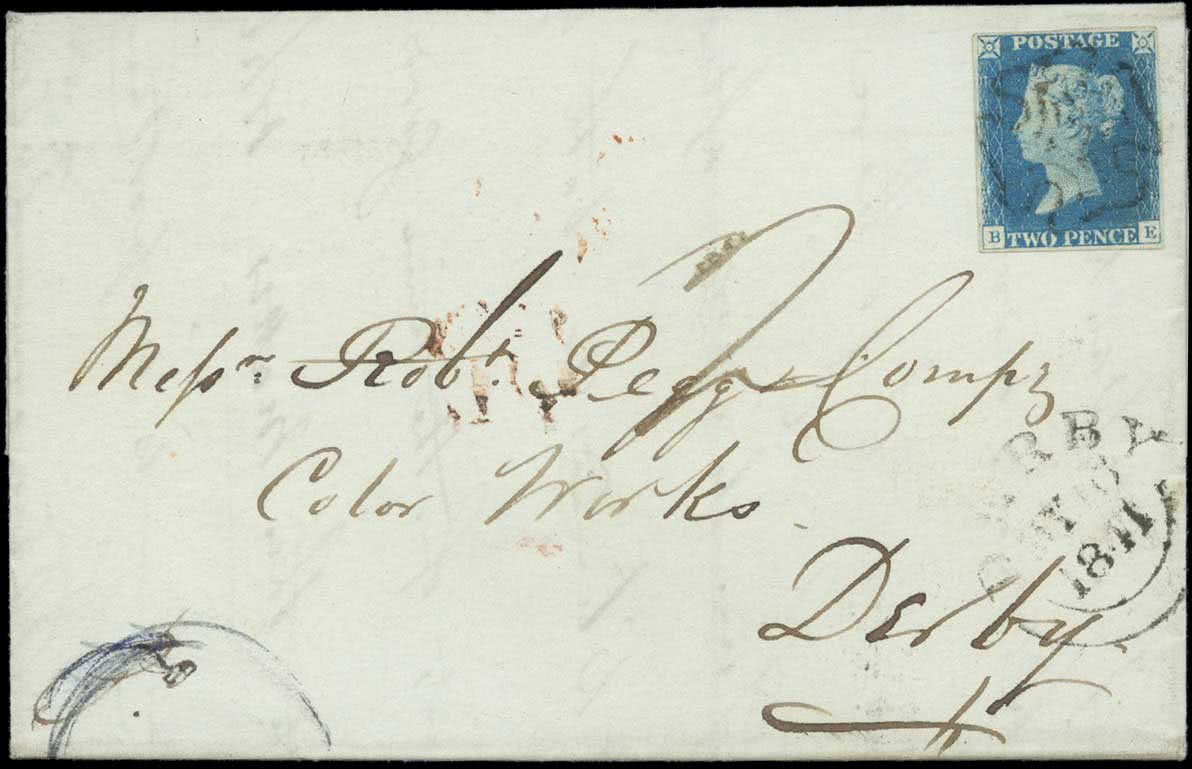 POSTAGE
B TWO PENCE E
Messrs Robt. Pegg & Compy
Color Works
Derby
RBY
1841